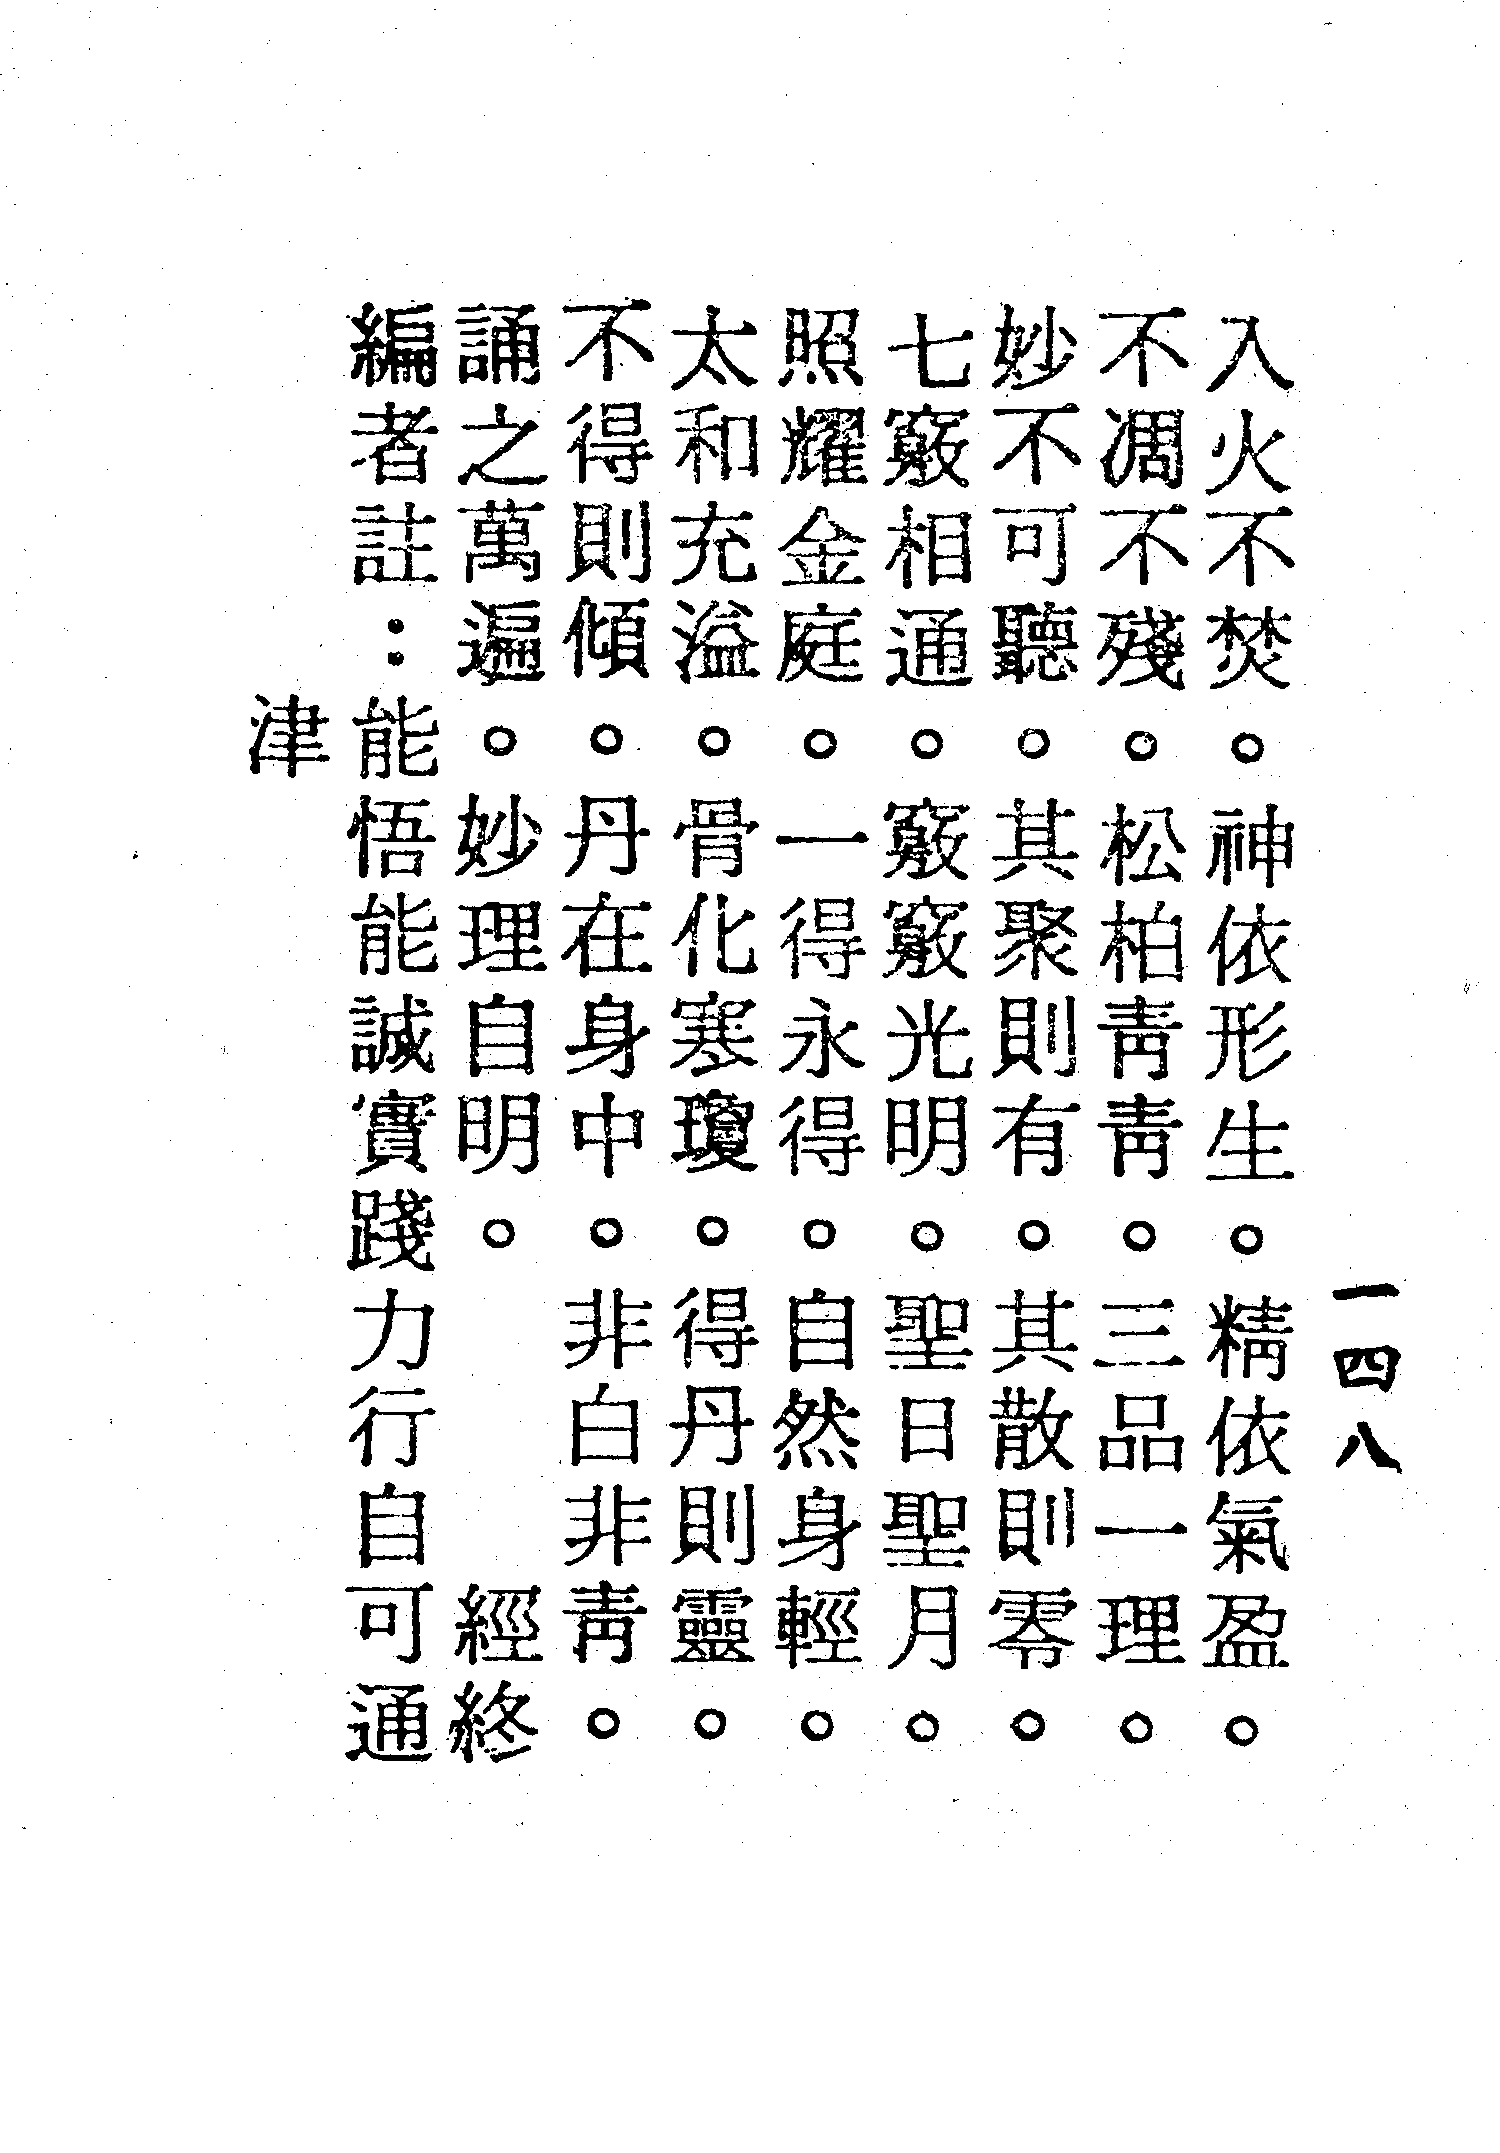 一四八
入火不焚。神依形生。精依氣盈。
不凋不殘。松柏靑靑。三品一理。
妙不可聽。其聚則有。其散則零。
七竅相通。竅竅光明。聖日聖月。
照耀金庭。一得永得。自然身輕。
太和充溢。骨化寒瓊。得丹則靈。
不得則傾。丹在身中。非白非靑。
誦之萬遍。妙理自明。　經終
編者註：能悟能誠實踐力行自可通
津